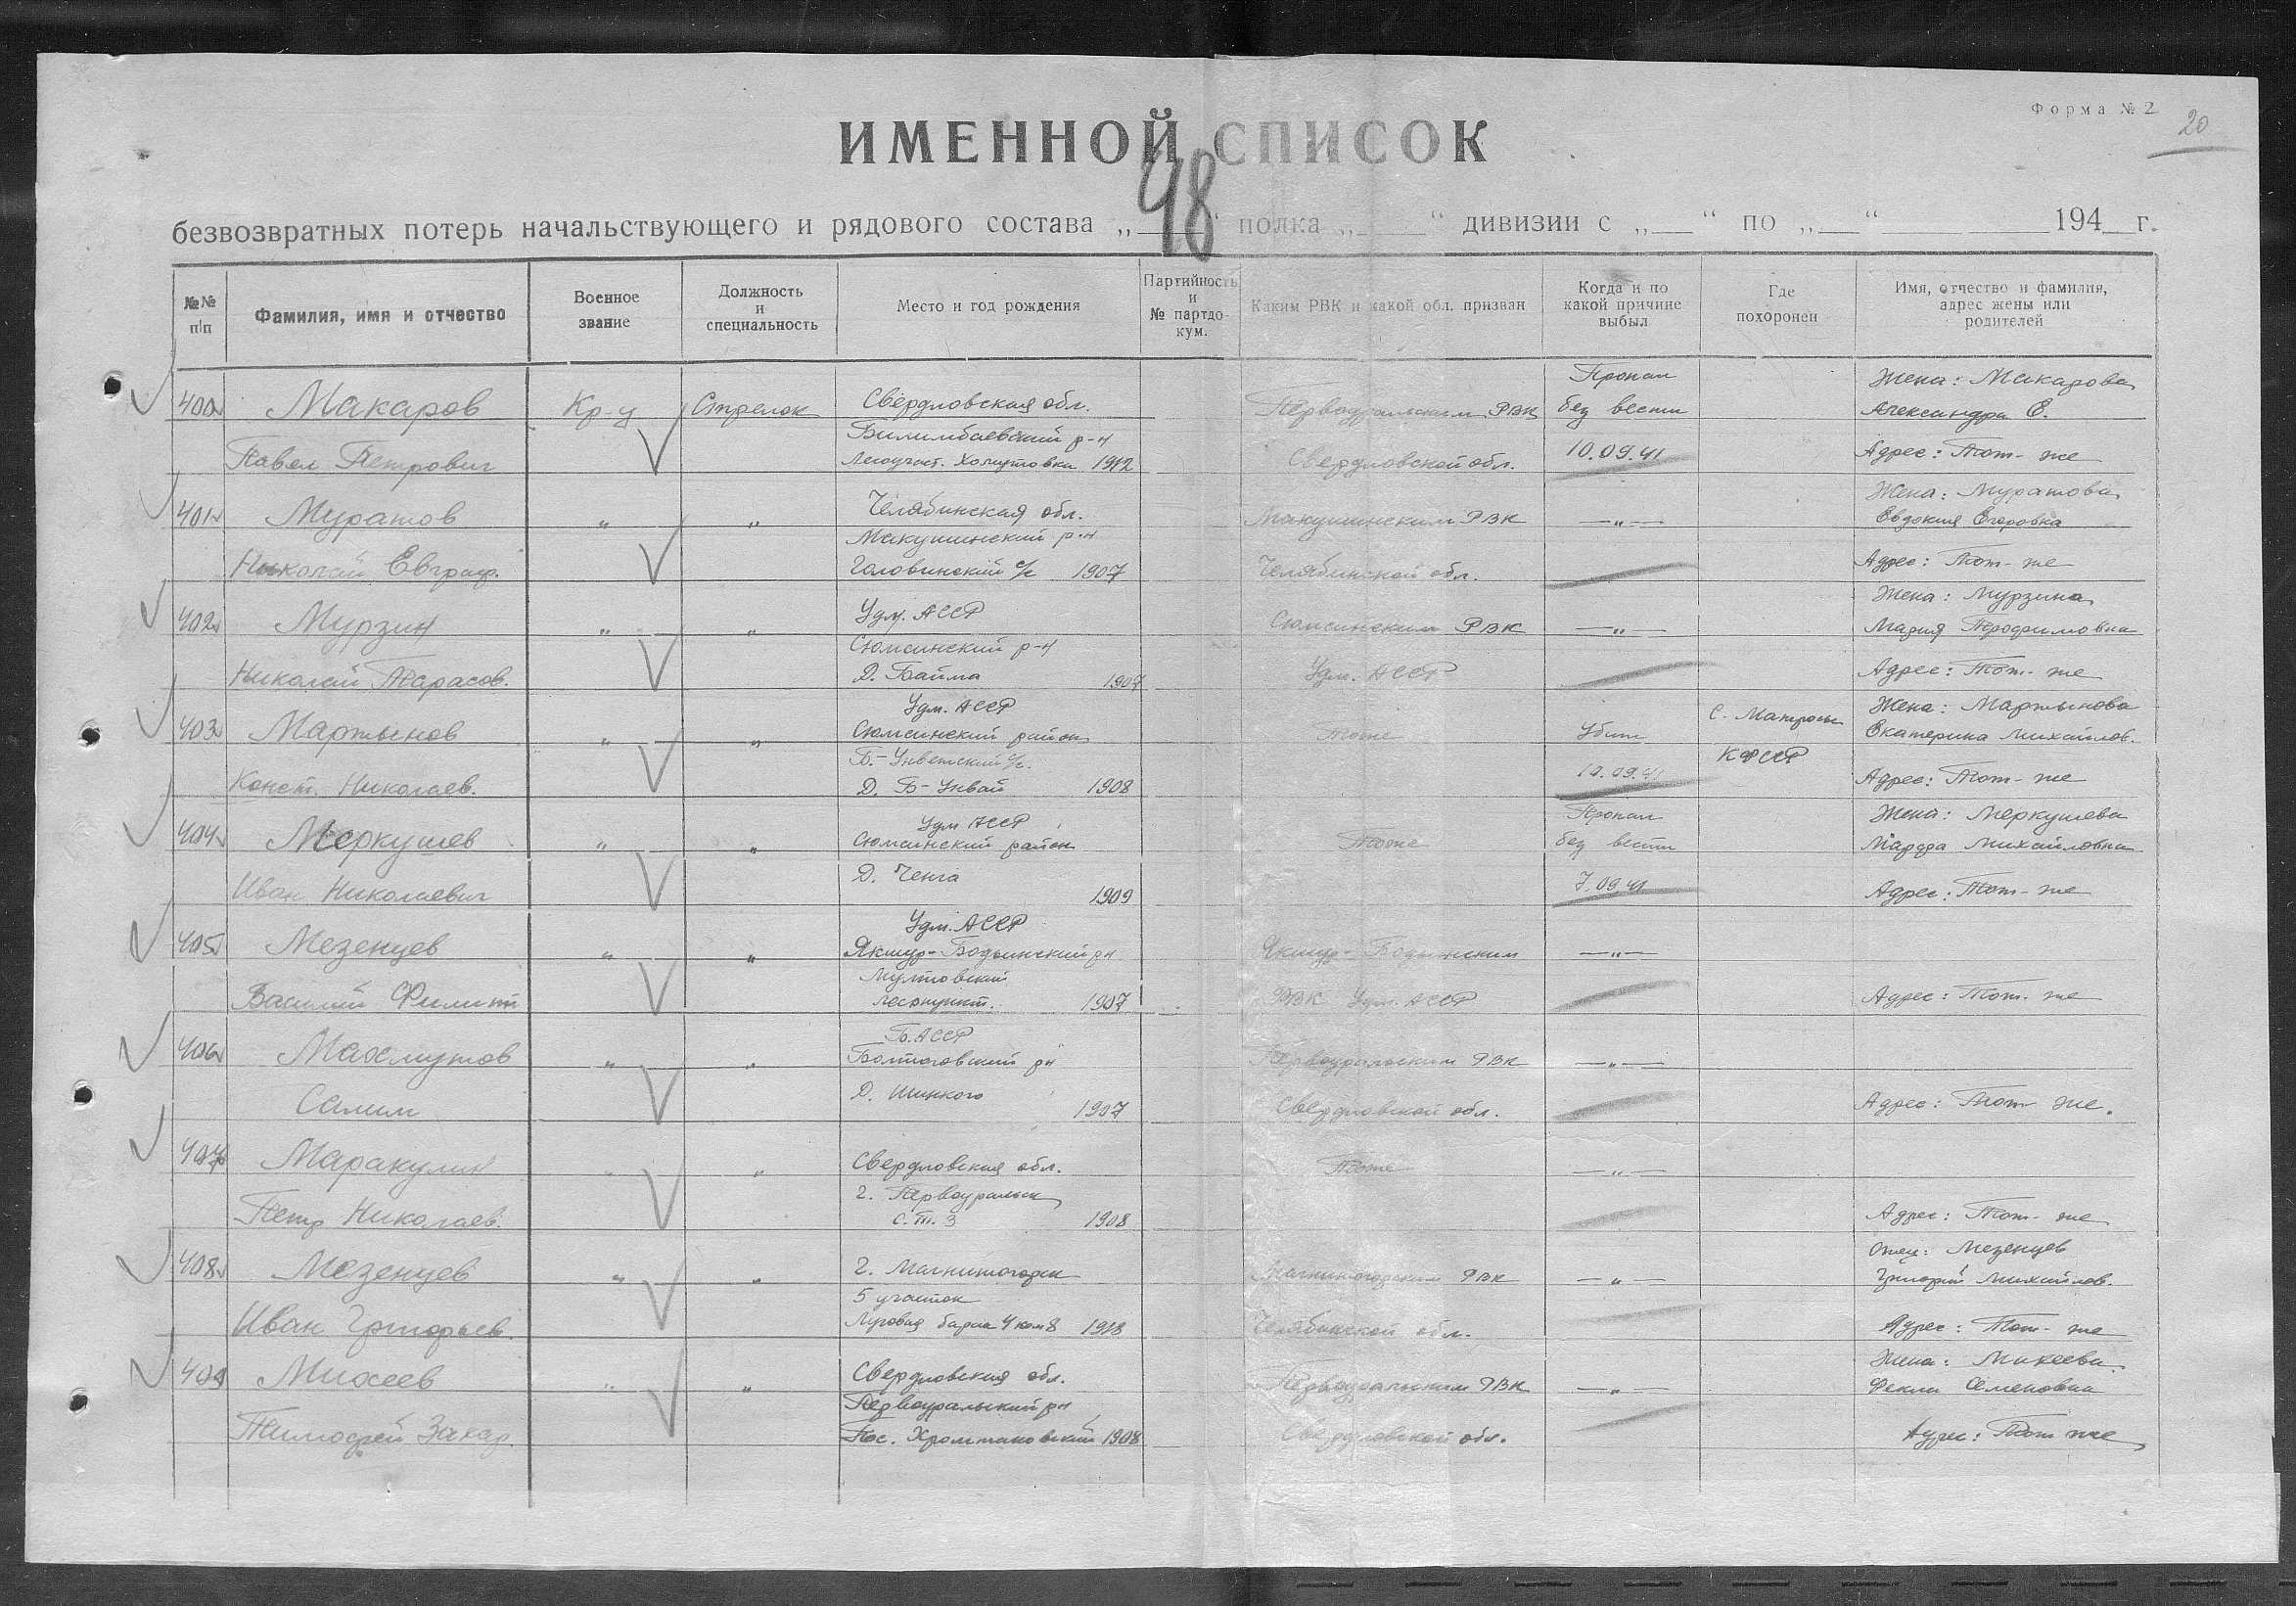 Форма № 2
20
ИМЕННОЙ СПИСОК
98
безвозвратных потерь начальствующего и рядового состава „ “ полка „ “ дивизии с „ “ по „ “ 194 г.
№№ п/п
Фамилия, имя и отчество
Военное звание
Должность и специальность
Место и год рождения
Партийность и № партдокум.
Каким РВК и какой обл. призван
Когда и по какой причине выбыл
Где похоронен
Имя, отчество и фамилия, адрес жены или родителей
Пропал Жена: Макарова
400 Макаров Кр-ц Стрелок Свердловская обл. Первоуральским РВК без вести Александра Е.
Билимбаевский р-н
Павел Петрович 1912 Свердловской обл. 10.09.41 Адрес: Тот-же
Жена: Муратова
401 Муратов „ „ Челябинская обл. Макушинским РВК —„— Евдокия Егоровна
Макушинский р-н
Николай Евграф. Головинский с/с 1907 Челябинской обл. Адрес: Тот-же
Жена: Мурзина
402 Мурзин „ „ Удм. АССР Сюмсинским РВК —„— Мария Трофимовна
Сюмсинский р-н
Николай Тарасов. Д. Байма 1907 Удм. АССР Адрес: Тот-же
Удм. АССР С. Матросы Жена: Мартынова
403 Мартынов „ „ Сюмсинский район Тоже Убит Екатерина Михайлов.
КФССР
Конст. Николаев. Д. Б-Унвай 1908 10.09.41 Адрес: Тот-же
Удм АССР Пропал Жена: Меркушева
404 Меркушев „ „ Сюмсинский район Тоже без вести Марфа Михайловна
Д. Ченга
Иван Николаевич 1909 7.09.41 Адрес: Тот-же
Удм. АССР
405 Мезенцев „ „ Якшур-Бодьинский рн Якшур-Бодьинским —„—
Мултовский
Василий Филипп лесопункт. 1907 РВК Удм. АССР Адрес: Тот-же
Б.АССР
406 Махмутов „ „ рн Первоуральским РВК —„—
Салим Д. 1907 Свердловской обл. Адрес: Тот же.
407 Маракулин „ „ Свердловская обл. Тоже —„—
г. Первоуральск
Петр Николаев. с.т. 3 1908 Адрес: Тот-же
Отец: Мезенцев
408 Мезенцев „ „ г. Магнитогорск Магнитогорским РВК —„— Григорий Михайлов.
5 участок
Иван Григорьев. Луговая барак 4 ком 8 1918 Челябинской обл. Адрес: Тот-же
Жена: Михеева
409 Михеев „ „ Свердловская обл. Первоуральским РВК —„— Фекла Семеновна
Первоуральский рн
Тимофей Захар. Пос. 1908 Свердловской обл. Адрес: Тот же